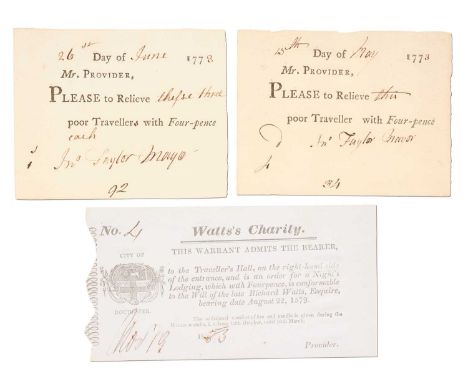 26st Day of June 1773
Mr. PROVIDER,
PLEASE to Relieve these three
poor Travellers with Four-pence
each
Jno Taylor Mayor
92
15th Day of May 1773
Mr. PROVIDER,
PLEASE to Relieve this
poor Traveller with Four-pence
Jno Taylor Mayor
No. 4 Watts's Charity.
THIS WARRANT ADMITS THE BEARER,
CITY OF
to the Traveller's Hall, on the right-hand side
of the entrance, and is an order for a Night's
Lodging, which with Fourpence, is conformable
to the Will of the late Richard Watts, Esquire,
bearing date August 22, 1579.
ROCHESTER.
Nov 19 83
Provider.